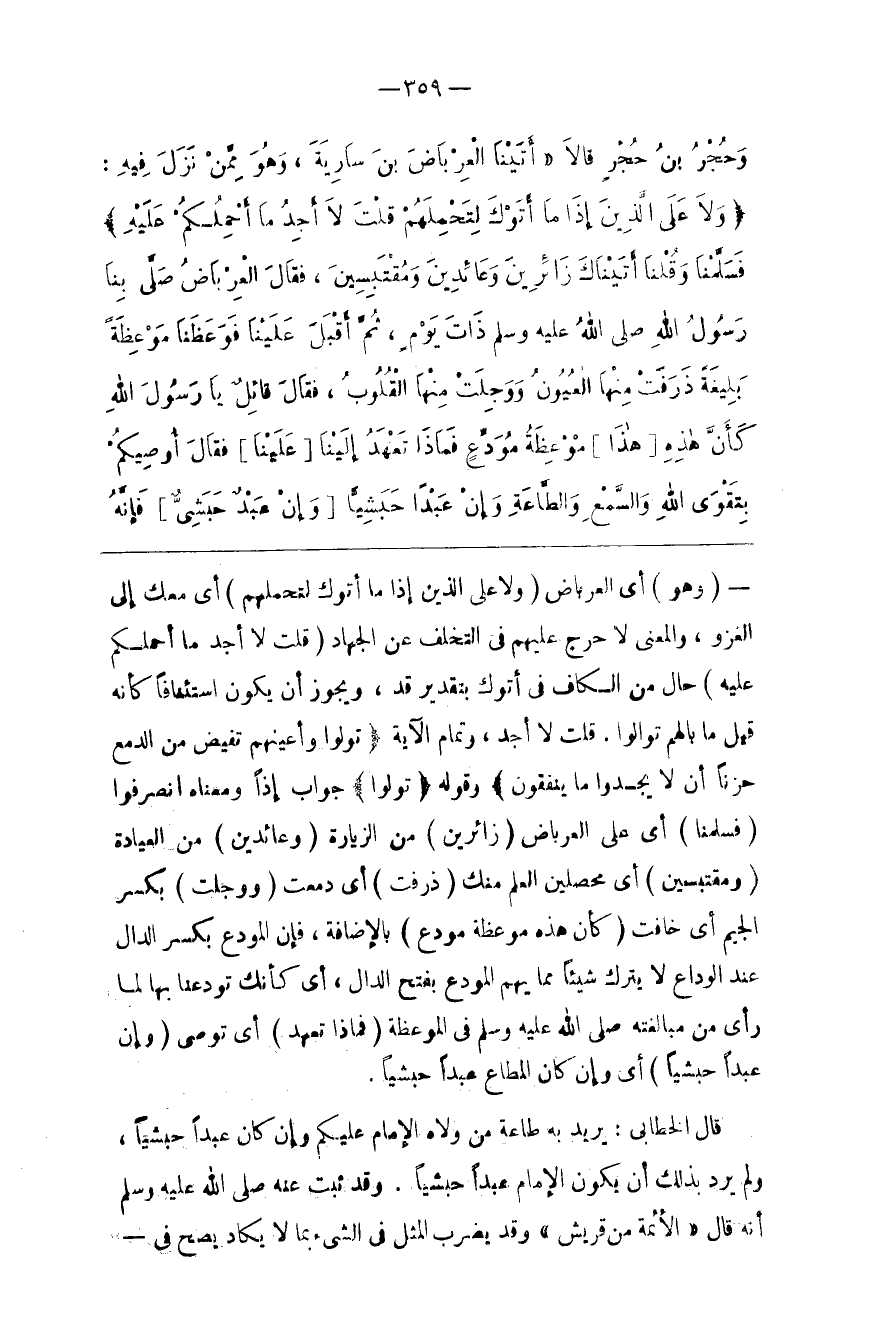 — ٣٥٩ —
وَحُجْرُ بنُ حُجْرٍ قالاَ « أَتَيْنَا الْعِرْبَاضَ بنَ سارِيَةَ ، وَهُوَ مِمَّنْ نَزَلَ فِيهِ :
﴿ وَلاَ عَلَى الَّذِينَ إِذَا ما أَتَوْكَ لِتَحْمِلَهُمْ قلْتَ لاَ أجِدُ ما أَحْمِلُـكُمْ عَلَيْهِ ﴾
فَسَلَّمْنَا وَقُلْنا أَتَيْنَاكَ زَائِرِينَ وَعَائِدِينَ وَمُقْتَبِسِينَ ، فقالَ الْعِرْبَاضُ صَلَّى بِنا
رَسُولُ اللهِ صلى اللهُ عليه وسلم ذَاتَ يَوْمٍ ، ثُمَّ أَقْبَلَ عَلَيْنا فَوَعَظَنا مَوْعِظَةً
بَلِيغَةً ذَرَفَتْ مِنْها الْعُيُونُ وَوَجِلَتْ مِنْها الْقُلُوبُ ، فقالَ قائِلٌ يا رَسُولَ اللهِ
كَأَنَّ هٰذِهِ [ هٰذَا ] مَوْعِظَةُ مُوَدِّعٍ فَمَاذَا تَعْهَدُ إِلَيْنَا [ عَلَيْنَا ] فقالَ أُوصِيكُمْ
بِتَقْوَى اللهِ وَالسَّمْعِ وَالطَّاعَةِ وَإِنْ عَبْدًا حَبَشِيًّا [ وَإِنْ عَبْدٌ حَبَشِىٌّ ] فَإِنَّهُ
— ( وهو ) أى العرباض ( ولا على الذين إذا ما أتوك لتحملهم ) أى معك إلى
الغزو ، والمعنى لا حرج عليهم فى التخلف عن الجهاد ( قلت لا أجد ما أحملـكم
عليه ) حال من الـكاف فى أتوك بتقدير قد ، ويجوز أن يكون استئنافاً كأنه
قيل ما بالهم توالوا . قلت لا أجد ، وتمام الآية ﴿ تولوا وأعينهم تفيض من الدمع
حزناً أن لا يجـدوا ما ينفقون ﴾ وقوله ﴿ تولوا ﴾ جواب إذاً ومعناه انصرفوا
( فسلمنا ) أى على العرباض ( زائرين ) من الزيارة ( وعائدين ) من العيادة
( ومقتبسين ) أى محصلين العلم منك ( ذرفت ) أى دمعت ( ووجلت ) بكسر
الجيم أى خافت ( كأن هذه موعظة مودع ) بالإضافة ، فإن المودع بكسر الدال
عند الوداع لا يترك شيئاً مما يهم المودع بفتح الدال ، أى كأنك تودعنا بها لمـا
رأى من مبالغته صلى الله عليه وسلم فى الموعظة ( فماذا تعهد ) أى توصى ( وإن
عبداً حبشياً ) أى وإن كان المطاع عبداً حبشياً .
قال الخطابى : يريد به طاعة من ولاه الإمام عليكم وإن كان عبداً حبشياً ،
ولم يرد بذلك أن يكون الإمام عبداً حبشياً . وقد ثبت عنه صلى الله عليه وسلم
أنه قال « الأئمة من قريش » وقد يضرب المثل فى الشىء بما لا يكاد يصح فى —